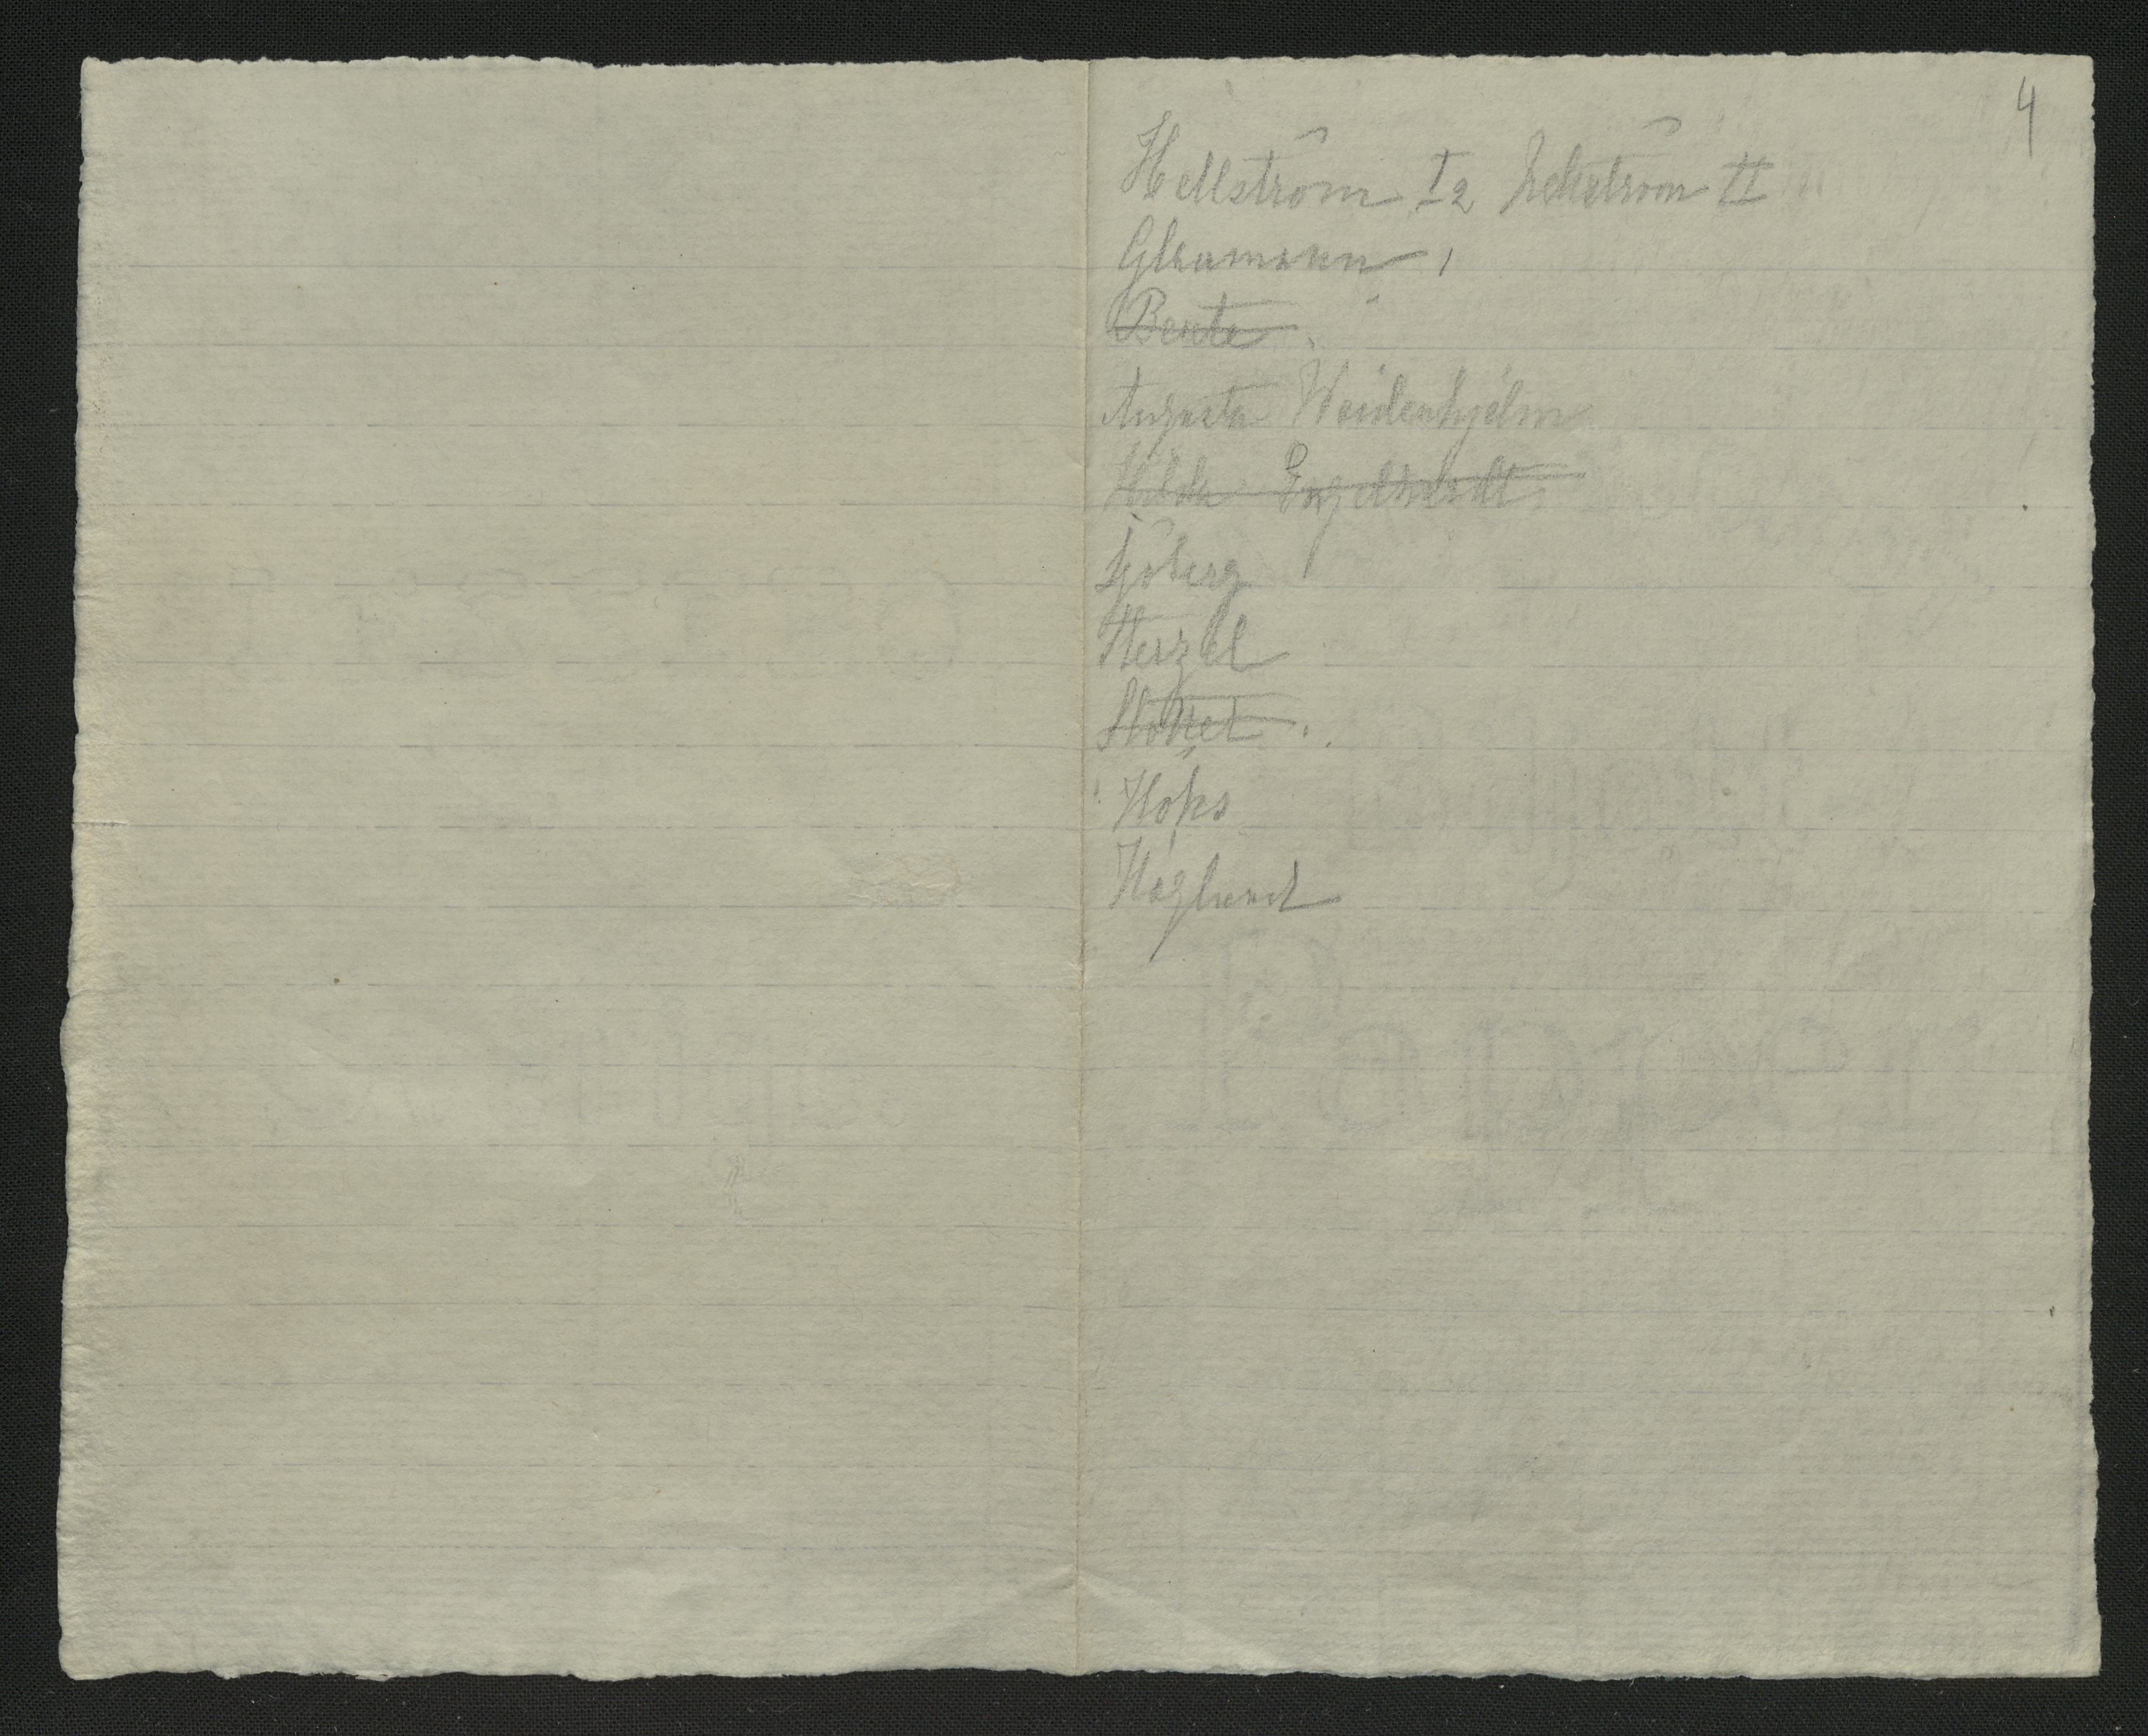 4
Hellström I 2 Hellström II
Glasmann
Bente
Augusta Weidenhjelm
Hilda Engelhardt
Sjöberg
Herzel
Hops
Höglund